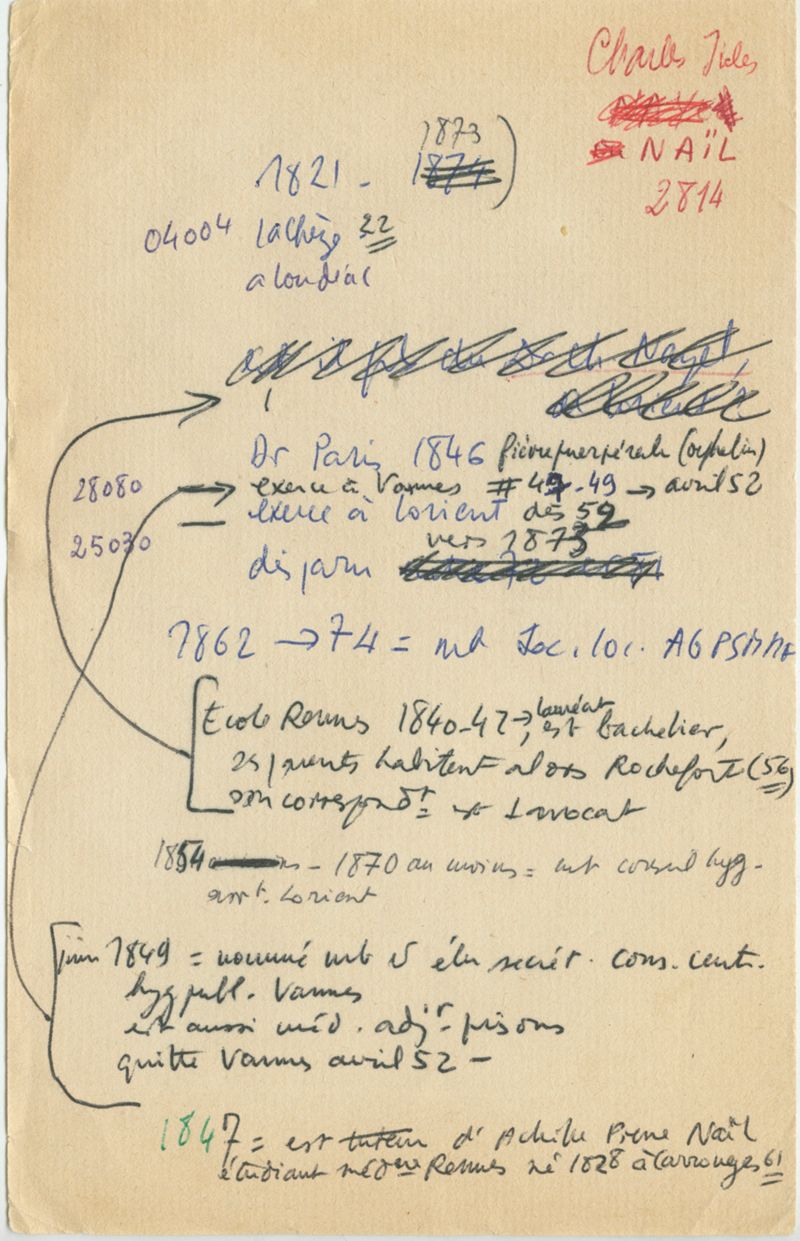 Charles Jules
NAÏL
2814
1873
1821 - 1874)
04004 Lachèze 22
a loudéac
Dr Paris 1846 fièvre puerpérale (orphelin)
28080 exerce à Vannes # 49 - 49 → avril 52
25030 exerce à Lorient dès 52
vers 1873
disparu
1862 → 74 = mb Soc. loc. AGPSMMF
Ecole Rennes 1840-42 → lauréat, est bachelier,
ses parents habitent alors Rochefort (56)
son correspondt est 1 avocat
1854 - 1870 au moins = mb conseil hyg.
arrt. Lorient
juin 1849 = nommé mb & élu secrét. cons. cent.
hyg publ. Vannes
est aussi méd. adjt prisons
quitte Vannes avril 52 -
1847 = est tuteur d'Achille Pierre Naïl
étudiant médne Rennes né 1828 à Carrouges 61